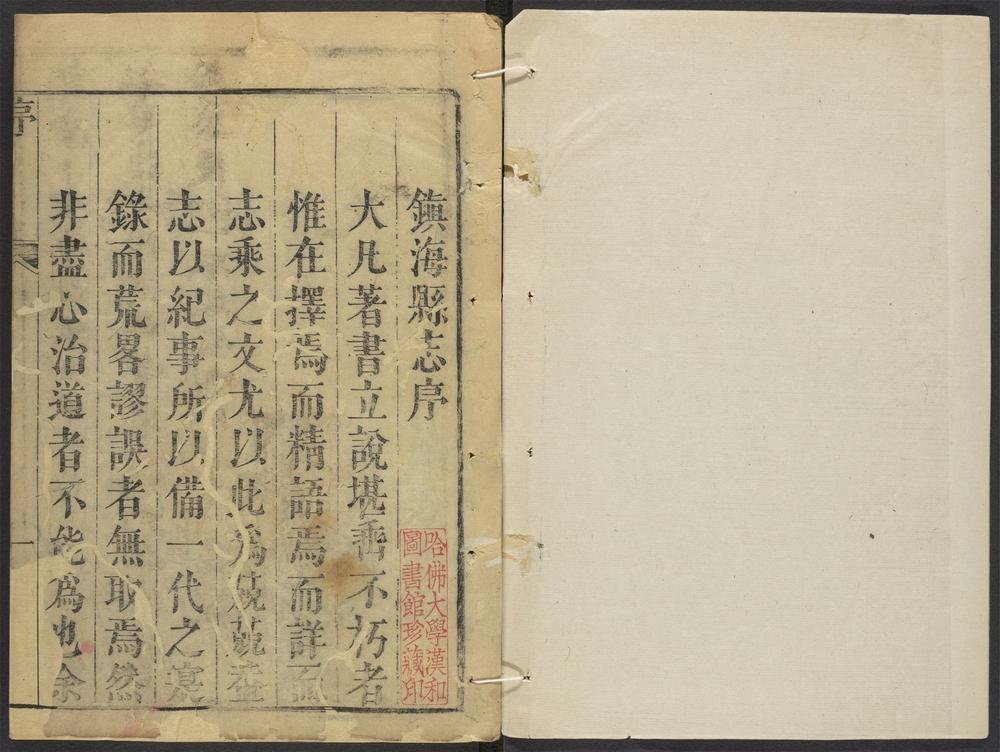 鎮海縣志序
大凡著書立說堪垂不朽者
惟在擇焉而精語焉而詳而
志乘之文尤以此為兢兢蓋
志以紀事所以備一代之寔
錄而荒畧謬誤者無取焉然
非盡心治道者不能為也余
序
一
哈佛大學漢和
圖書館珍藏印